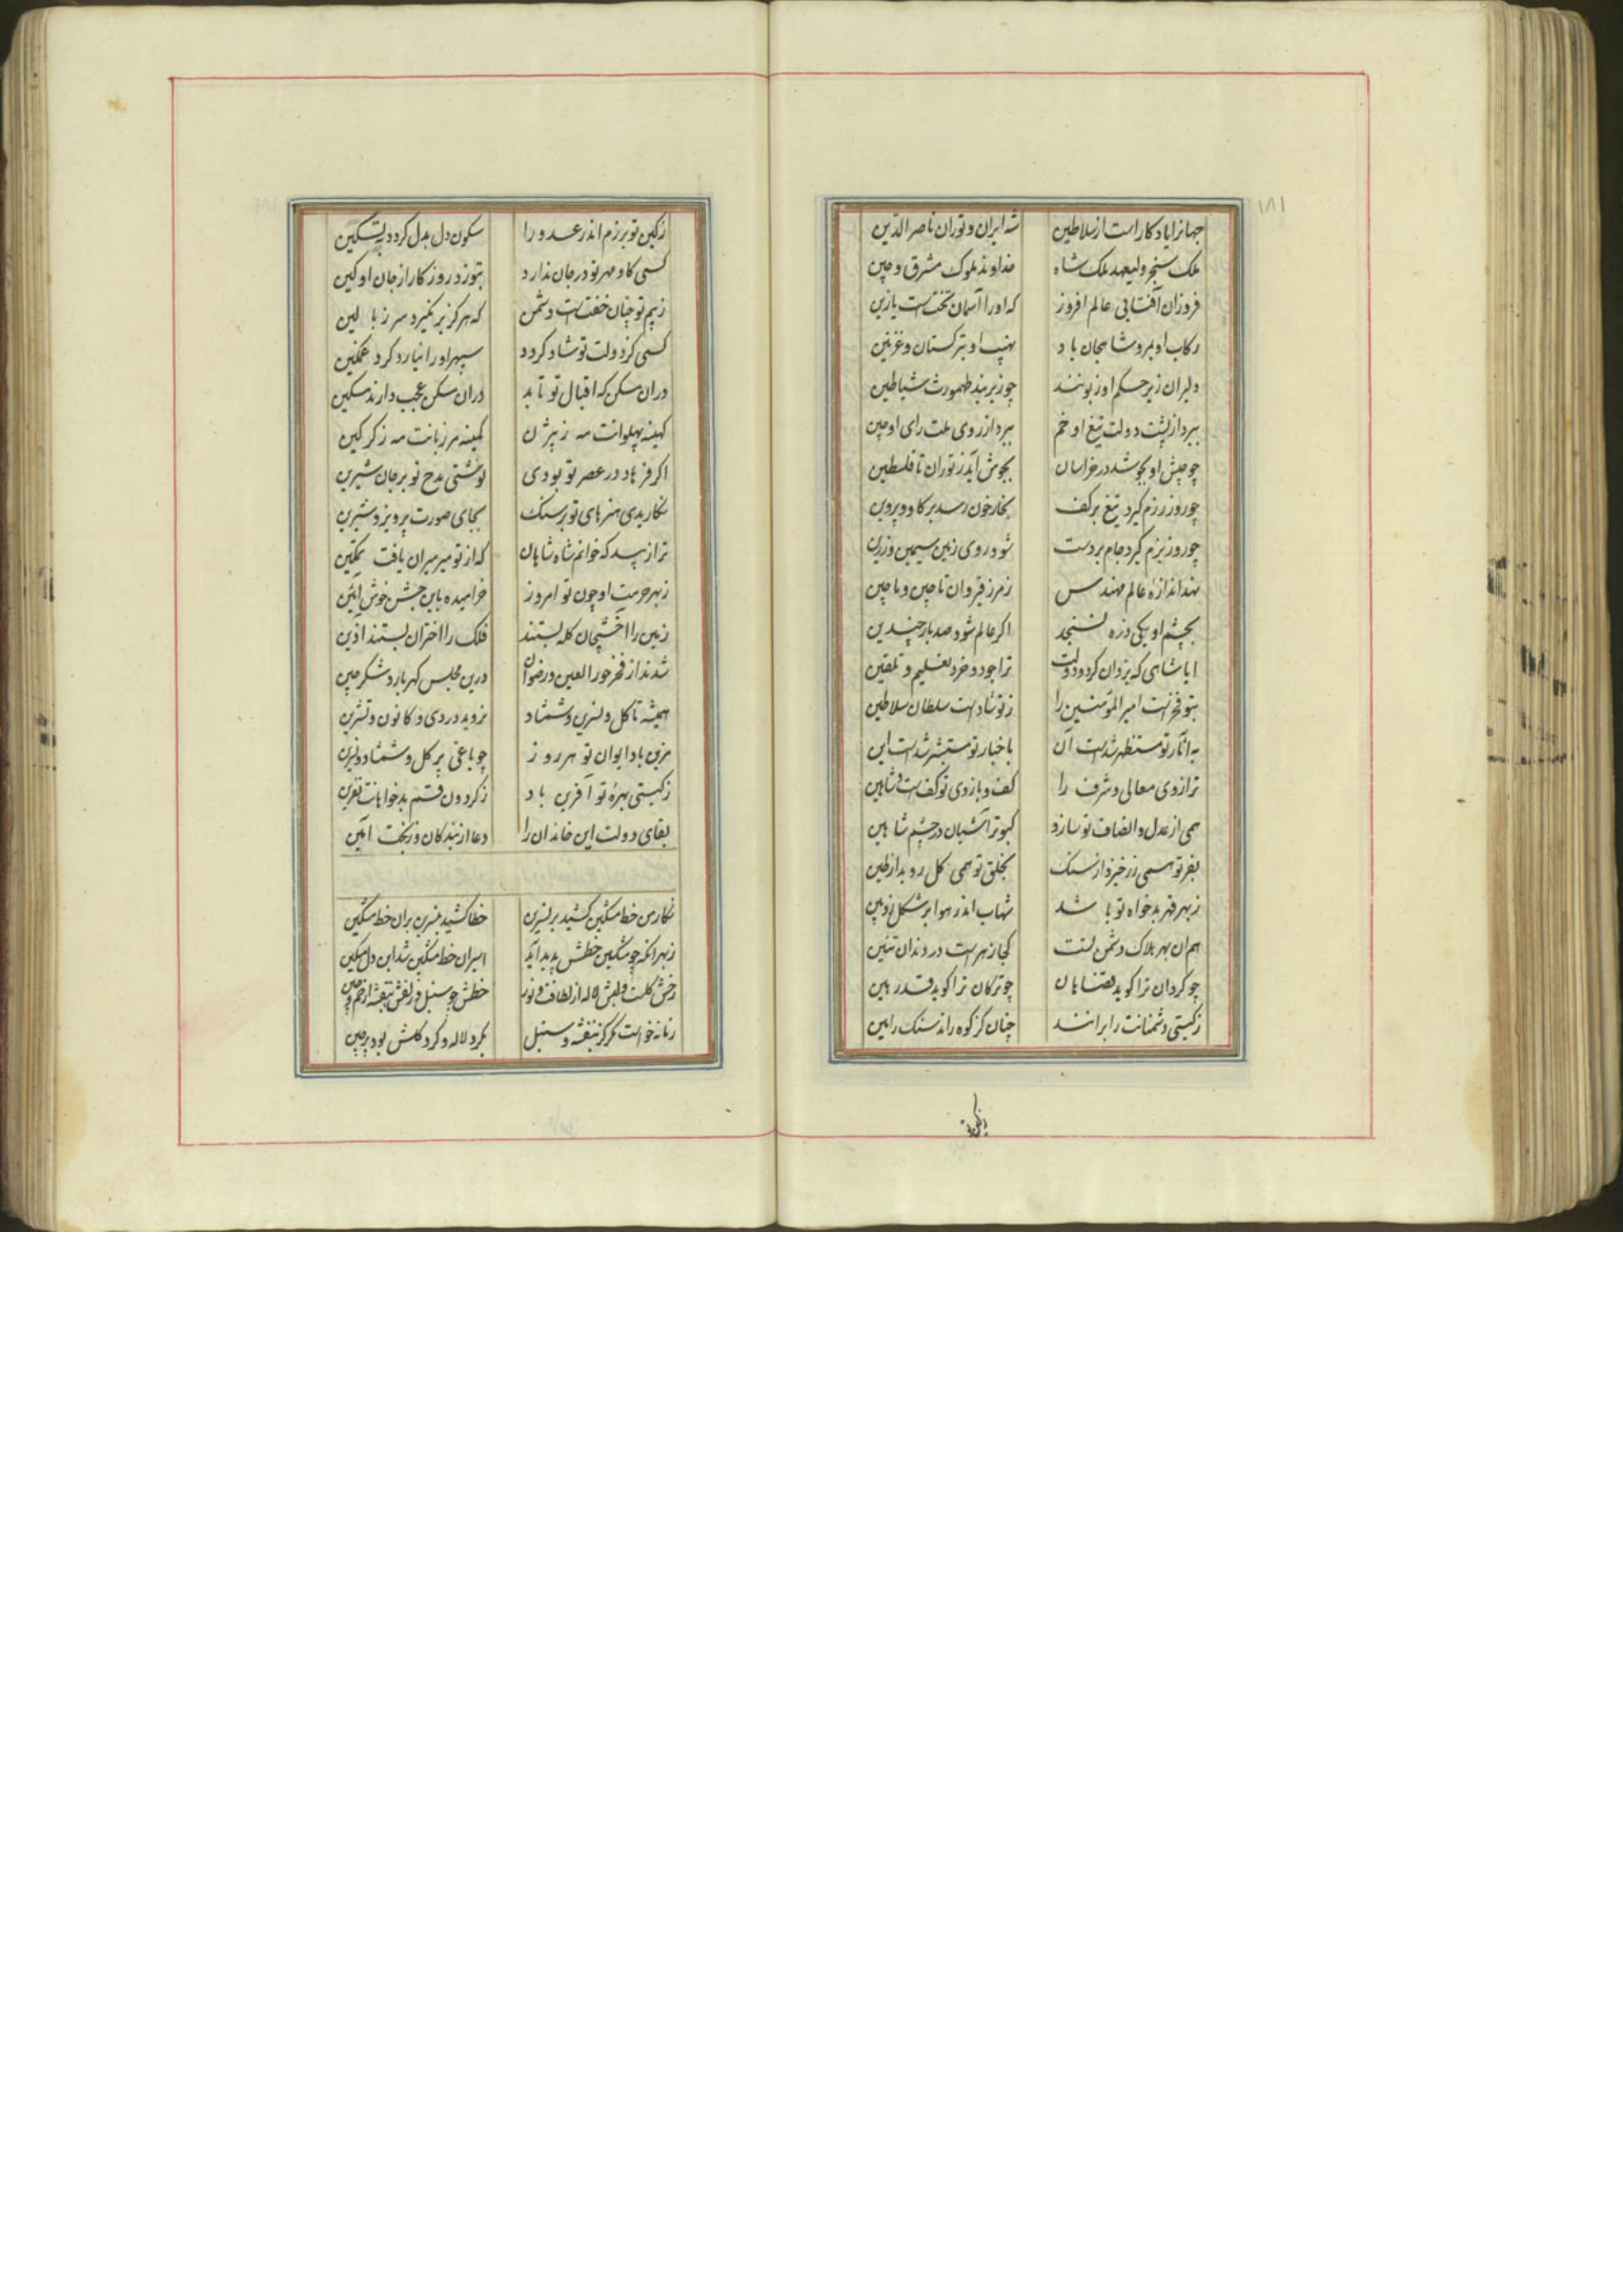 ۱۸۱
جهانرا یادکار است از سلاطین شه ایران و توران ناصر الدین
ملک سنجر ولیعهد ملک شاه خداوند ملوک مشرق و چین
فروزان آفتابی عالم افروز که او را آسمان تختست یا زین
رکاب او بمرو شاهجان باد نهیب او بترکستان و غزنین
دلیران زیر حکم او زبونند چو زیر بند طهمورث شیاطین
ببرد از پشت دولت تیغ او خم ببرد از روی ملت رای او چین
چو جیش او بجوشد در خراسان بجوش آید ز توران تا فلسطین
چو روز رزم کیرد تیغ بر کف بخار خون رسد بر کاو و پروین
چو روز بزم کیرد جام بر دست شود روی زمین سیمین و زرین
نهد اندازهٔ عالم مهندس ز مرز قیروان تا چین و ماچین
بچشم او یکی ذره نسنجد اکر عالم شود صد بار چندین
ایا شاهی که یزدان کرد و دولت ترا جود و خرد تعلیم و تلقین
بتو فخرست امیر المؤمنین را ز تو شادست سلطان سلاطین
به آثار تو مستظهر شدست آن باخبار تو مستبشر شدست این
ترازوی معالی و شرف را کف و بازوی تو کفست و شاهین
همی از عدل و انصاف تو سازد کبوتر آشیان در چشم شاهین
بفر تو همی زر خیزد از سنک بخلق تو همی کل روید از طین
ز بهر قهر بدخواه تو باشد شهاب اندر هوا بر شکل زوبین
هم آن بهر هلاک دشمن تست کجا زهرست در دندان تنین
چو کردان ترا کوید قضا هان چو ترکان ترا کوید قدر هین
ز کیتی دشمنانت را برانند چنان کز کوه راند سنک رامین
ز کین تو
ز کین تو برزم اندر عدو را سکون دل بدل کردد بتسکین
کسی کاو مهر تو در جان ندارد بتوزد روزکار از جان او کین
ز بیم تو چنان خفتست دشمن که هرکز بر نکیرد سر ز بالین
کسی کز دولت تو شاد کردد سپهر او را نیارد کرد غمکین
در آن مسکن که اقبال تو تابد در آن مسکن عجب دارند مسکین
کهینه پهلوانت مه ز بیژن کمینه مرزبانت مه ز کرکین
اکر فرهاد در عصر تو بودی نوشتی مدح تو بر جان شیرین
نکاریدی هنرهای تو بر سنک بجای صورت پرویز و شیرین
ترا زیبد که خوانم شاه شاهان که از تو میر میران یافت تمکین
ز بهر حرمت او چون تو امروز خرامیده باین جشن خوش آئین
زمین را اخشیجان کله بستند فلک را اختران بستند آذین
شدند از فخر حور العین و رضوان درین مجلس کهربار و شکرچین
همیشه تا کل و نسرین و شمشاد نروید در دی و کانون و تشرین
مزین باد ایوان تو هر روز چو باغی پر کل و شمشاد و نسرین
ز کیتی بهرهٔ تو آفرین باد ز کردون قسم بدخواهانت نفرین
بقای دولت این خاندان را دعا از بندکان وز بخت آمین
نکار من خط مشکین کشید بر نسرین خطا کشید بنسرین بر آن خط مشکین
ز بهر آنکه چو مشکین خطش پدید آید اسیر آن خط مشکین شد این دل مسکین
رخش کلست و لبش لاله از لطافت و نور خطش چو سنبل و زلفش بنفشه از خم و چین
زمانه خواست مکر کز بنفشه و سنبل بکرد لاله و کرد کلش بود پرچین